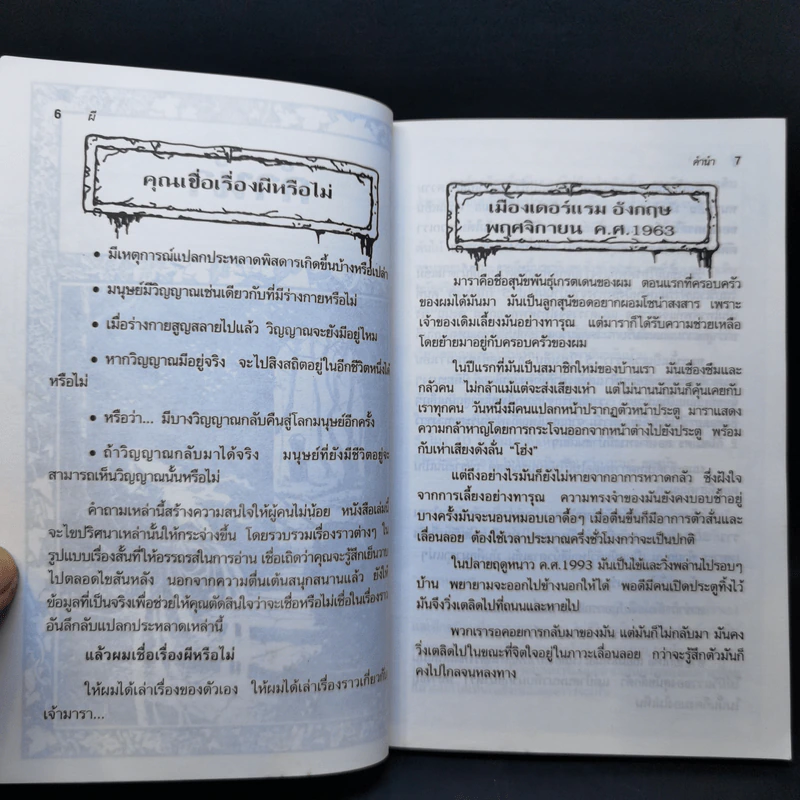 6 ผี
คุณเชื่อเรื่องผีหรือไม่
• มีเหตุการณ์แปลกประหลาดพิสดารเกิดขึ้นบ้างหรือเปล่า
• มนุษย์มีวิญญาณเช่นเดียวกับที่มีร่างกายหรือไม่
• เมื่อร่างกายสูญสลายไปแล้ว วิญญาณจะยังมีอยู่ไหม
• หากวิญญาณมีอยู่จริง จะไปสิงสถิตอยู่ในอีกชีวิตหนึ่งได้
หรือไม่
• หรือว่า... มีบางวิญญาณกลับคืนสู่โลกมนุษย์อีกครั้ง
• ถ้าวิญญาณกลับมาได้จริง มนุษย์ที่ยังมีชีวิตอยู่จะ
สามารถเห็นวิญญาณนั้นหรือไม่
คำถามเหล่านี้สร้างความสนใจให้ผู้คนไม่น้อย หนังสือเล่มนี้
จะไขปริศนาเหล่านั้นให้กระจ่างขึ้น โดยรวบรวมเรื่องราวต่างๆ ใน
รูปแบบเรื่องสั้นที่ให้อรรถรสในการอ่าน เชื่อเถิดว่าคุณจะรู้สึกเย็นวาบ
ไปตลอดไขสันหลัง นอกจากความตื่นเต้นสนุกสนานแล้ว ยังให้
ข้อมูลที่เป็นจริงเพื่อช่วยให้คุณตัดสินใจว่าจะเชื่อหรือไม่เชื่อในเรื่องราว
อันลึกลับแปลกประหลาดเหล่านี้
แล้วผมเชื่อเรื่องผีหรือไม่
ให้ผมได้เล่าเรื่องของตัวเอง ให้ผมได้เล่าเรื่องราวเกี่ยวกับ
เจ้ามารา...
คำนำ 7
เมืองเดอร์แรม อังกฤษ
พฤศจิกายน ค.ศ.1963
มาราคือชื่อสุนัขพันธุ์เกรตเดนของผม ตอนแรกที่ครอบครัว
ของผมได้มันมา มันเป็นลูกสุนัขอดอยากผอมโซน่าสงสาร เพราะ
เจ้าของเดิมเลี้ยงมันอย่างทารุณ แต่มาราก็ได้รับความช่วยเหลือ
โดยย้ายมาอยู่กับครอบครัวของผม
ในปีแรกที่มันเป็นสมาชิกใหม่ของบ้านเรา มันเซื่องซึมและ
กลัวคน ไม่กล้าแม้แต่จะส่งเสียงเห่า แต่ไม่นานนักมันก็คุ้นเคยกับ
เราทุกคน วันหนึ่งมีคนแปลกหน้าปรากฏตัวหน้าประตู มาราแสดง
ความกล้าหาญโดยการกระโจนออกจากหน้าต่างไปยังประตู พร้อม
กับเห่าเสียงดังลั่น "โฮ่ง"
แต่ถึงอย่างไรมันก็ยังไม่หายจากอาการหวาดกลัว ซึ่งฝังใจ
จากการเลี้ยงอย่างทารุณ ความทรงจำของมันยังคงบอบช้ำอยู่
บางครั้งมันจะนอนหมอบเอาดื้อๆ เมื่อตื่นขึ้นก็มีอาการตัวสั่นและ
เลื่อนลอย ต้องใช้เวลาประมาณครึ่งชั่วโมงกว่าจะเป็นปกติ
ในปลายฤดูหนาว ค.ศ.1993 มันเป็นไข้และวิ่งพล่านไปรอบๆ
บ้าน พยายามจะออกไปข้างนอกให้ได้ พอดีมีคนเปิดประตูทิ้งไว้
มันจึงวิ่งเตลิดไปที่ถนนและหายไป
พวกเรารอคอยการกลับมาของมัน แต่มันก็ไม่กลับมา มันคง
วิ่งเตลิดไปในขณะที่จิตใจอยู่ในภาวะเลื่อนลอย กว่าจะรู้สึกตัวมันก็
คงไปไกลจนหลงทาง